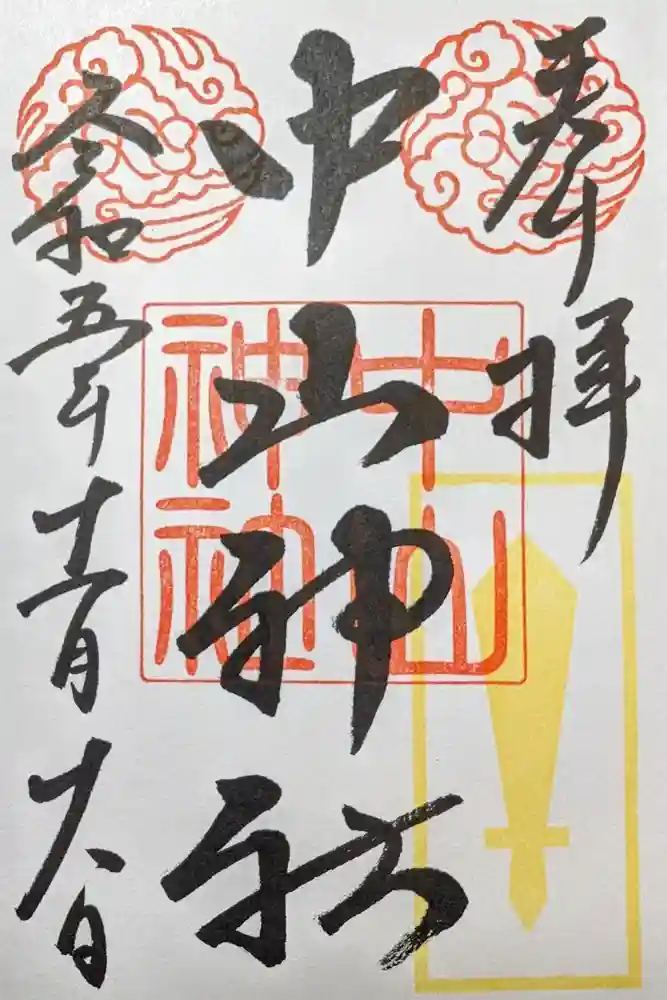 奉拝
中山神社
令和五年十一月十八日
中山
神社